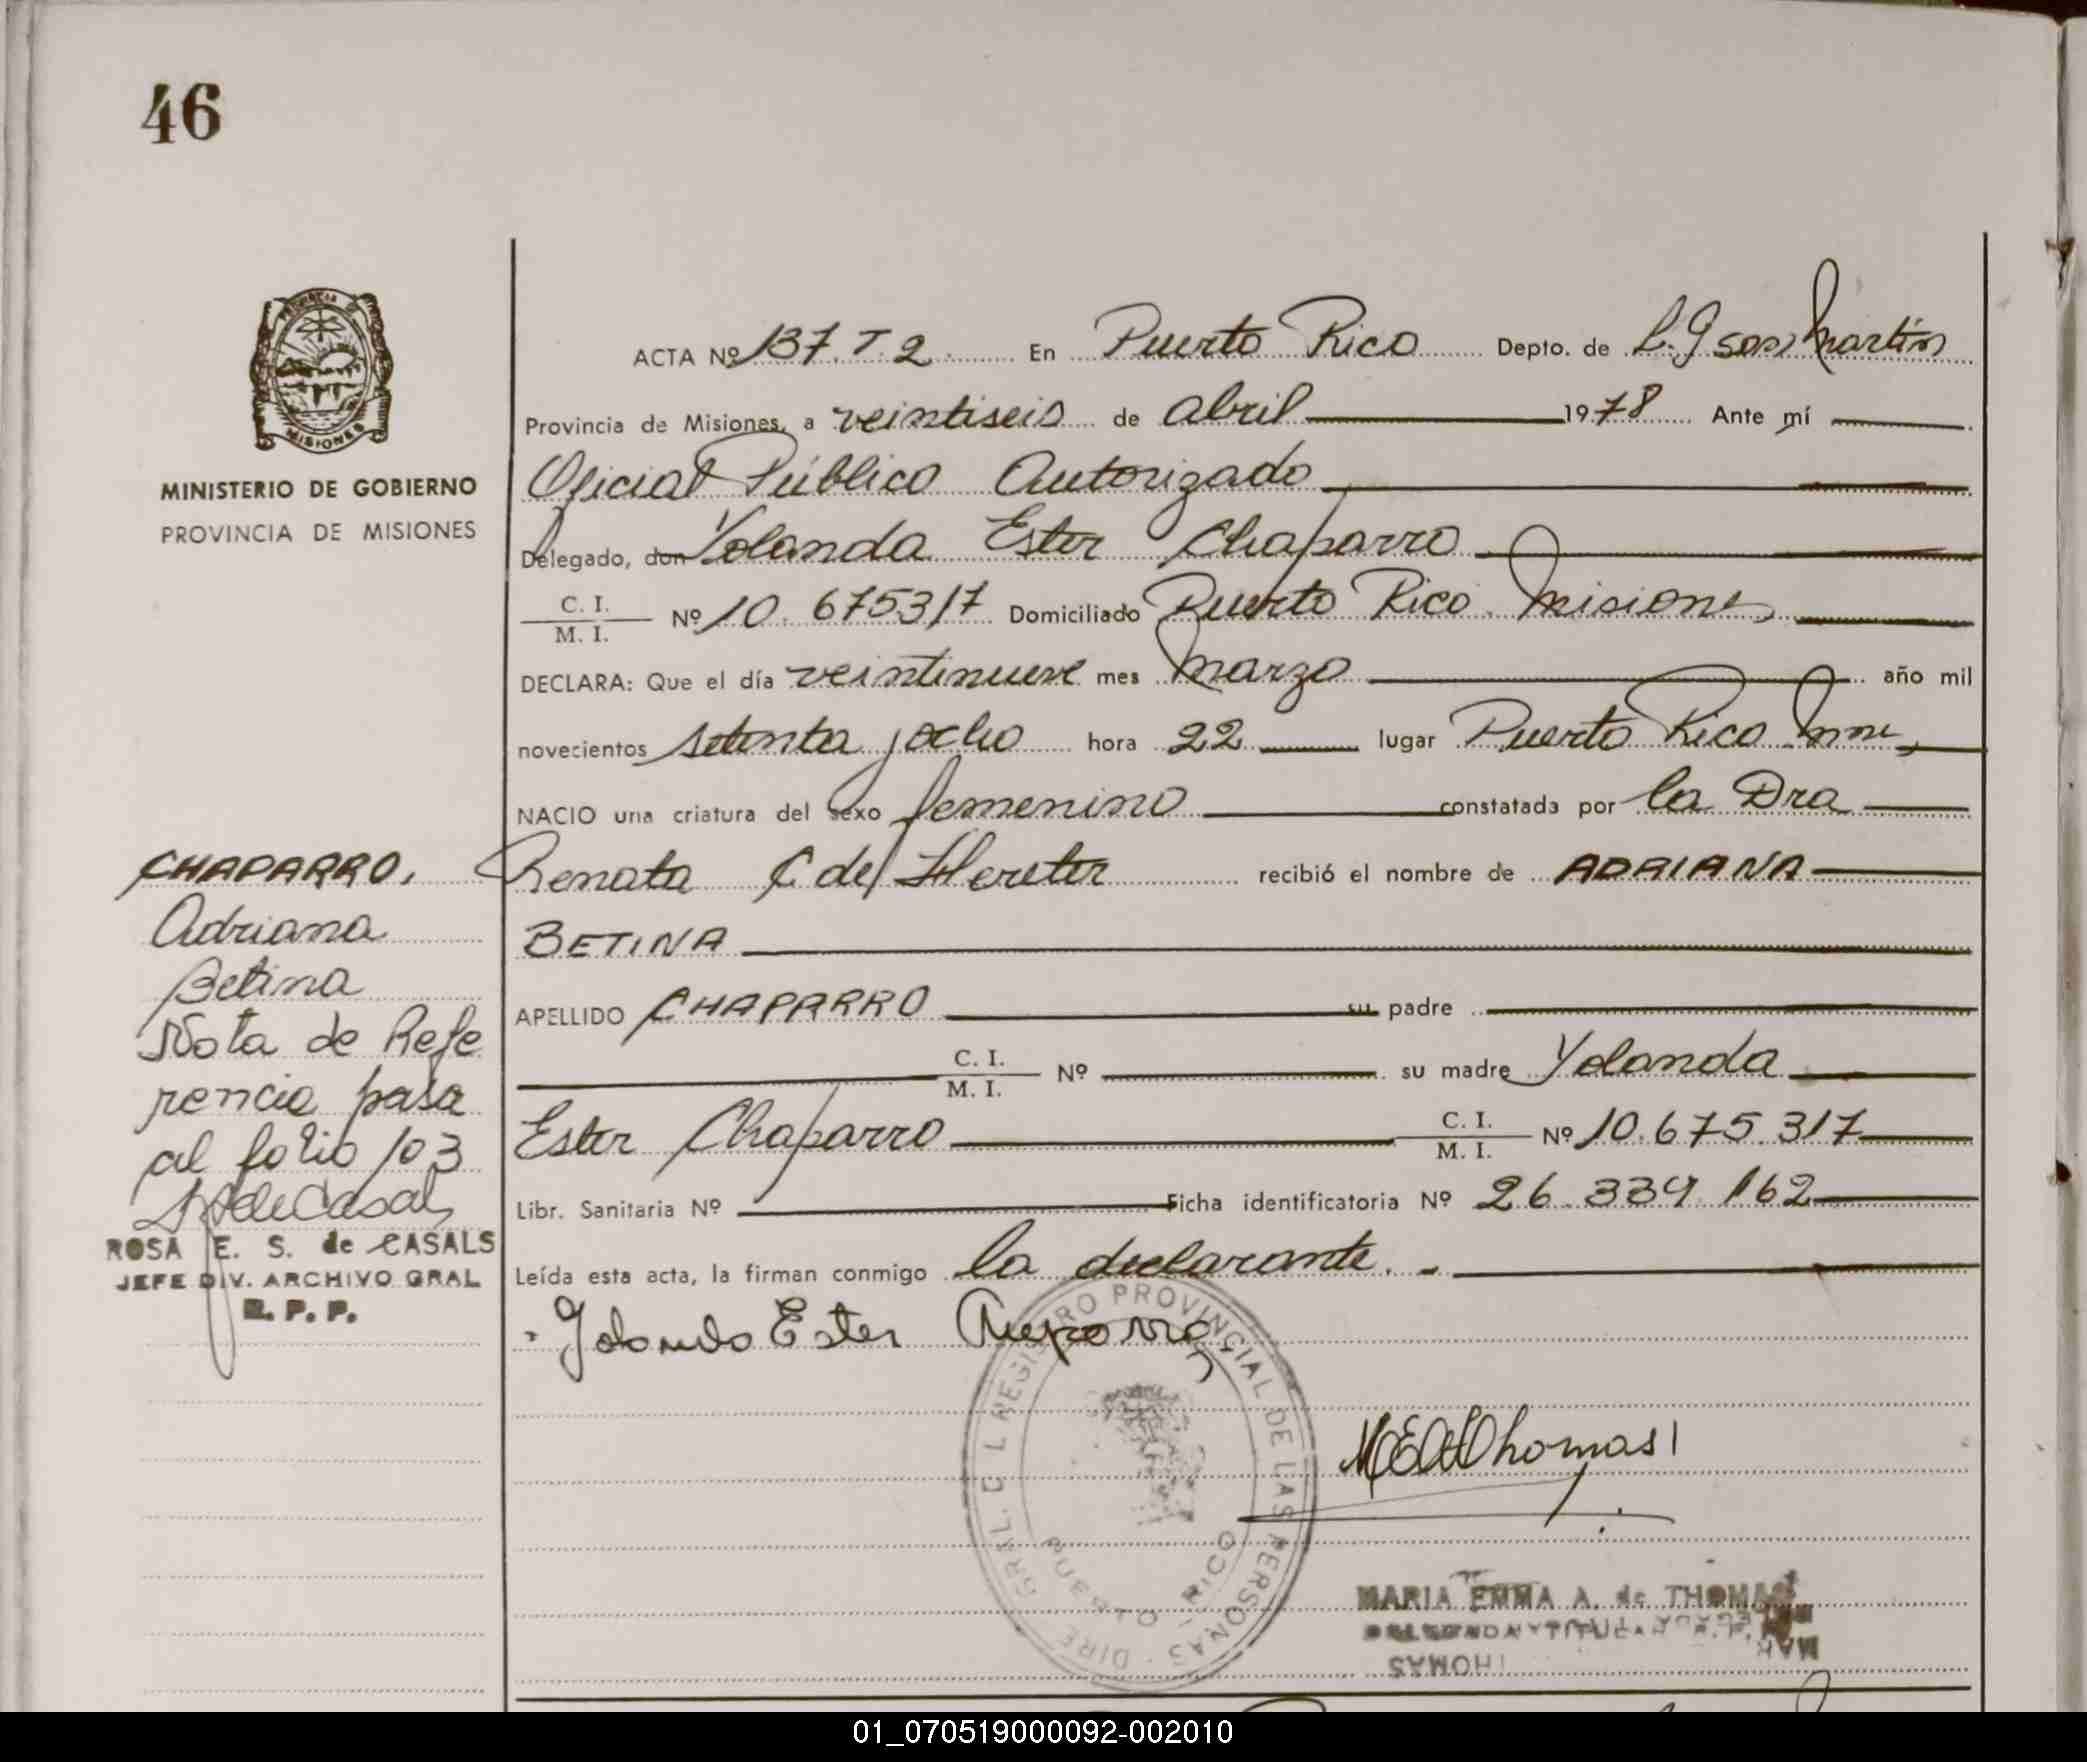 46
PROVINCIA DE
MISIONES
MINISTERIO DE GOBIERNO
PROVINCIA DE MISIONES
ACTA Nº 137. T. 2 En Puerto Rico Depto. de L. G San Martín
Provincia de Misiones, a veintiseis de abril 1978 Ante mí
Oficial Público Autorizado
Delegado, don Yolanda Ester Chaparro
C. I.
M. I. Nº 10.675317 Domiciliado Puerto Rico. Misiones
DECLARA: Que el día veintinueve mes marzo año mil
novecientos setenta y ocho hora 22 lugar Puerto Rico Mnes
NACIO una criatura del sexo femenino constatada por la Dra
Renata C de Hereter recibió el nombre de ADRIANA
BETINA
APELLIDO CHAPARRO su padre
C. I.
M. I. Nº su madre Yolanda
Ester Chaparro C. I.
M. I. Nº 10.675.317
Libr. Sanitaria Nº Ficha identificatoria Nº 26.334.162
Leída esta acta, la firman conmigo la declarante. -
Yolanda Ester Chaparro
CHAPARRO,
Adriana
Betina
Nota de Refe
rencia pasa
al folio 103
ROSA E. S. de CASALS
JEFE DIV. ARCHIVO GRAL
R. P. P.
DIRE GRAL. D L REGISTRO PROVINCIAL DE LAS PERSONAS
PUERTO RICO
MEAThomas
MARIA EMMA A. de THOMAS
DELEGADA TITULAR R. P.
THOMAS
01_070519000092-002010